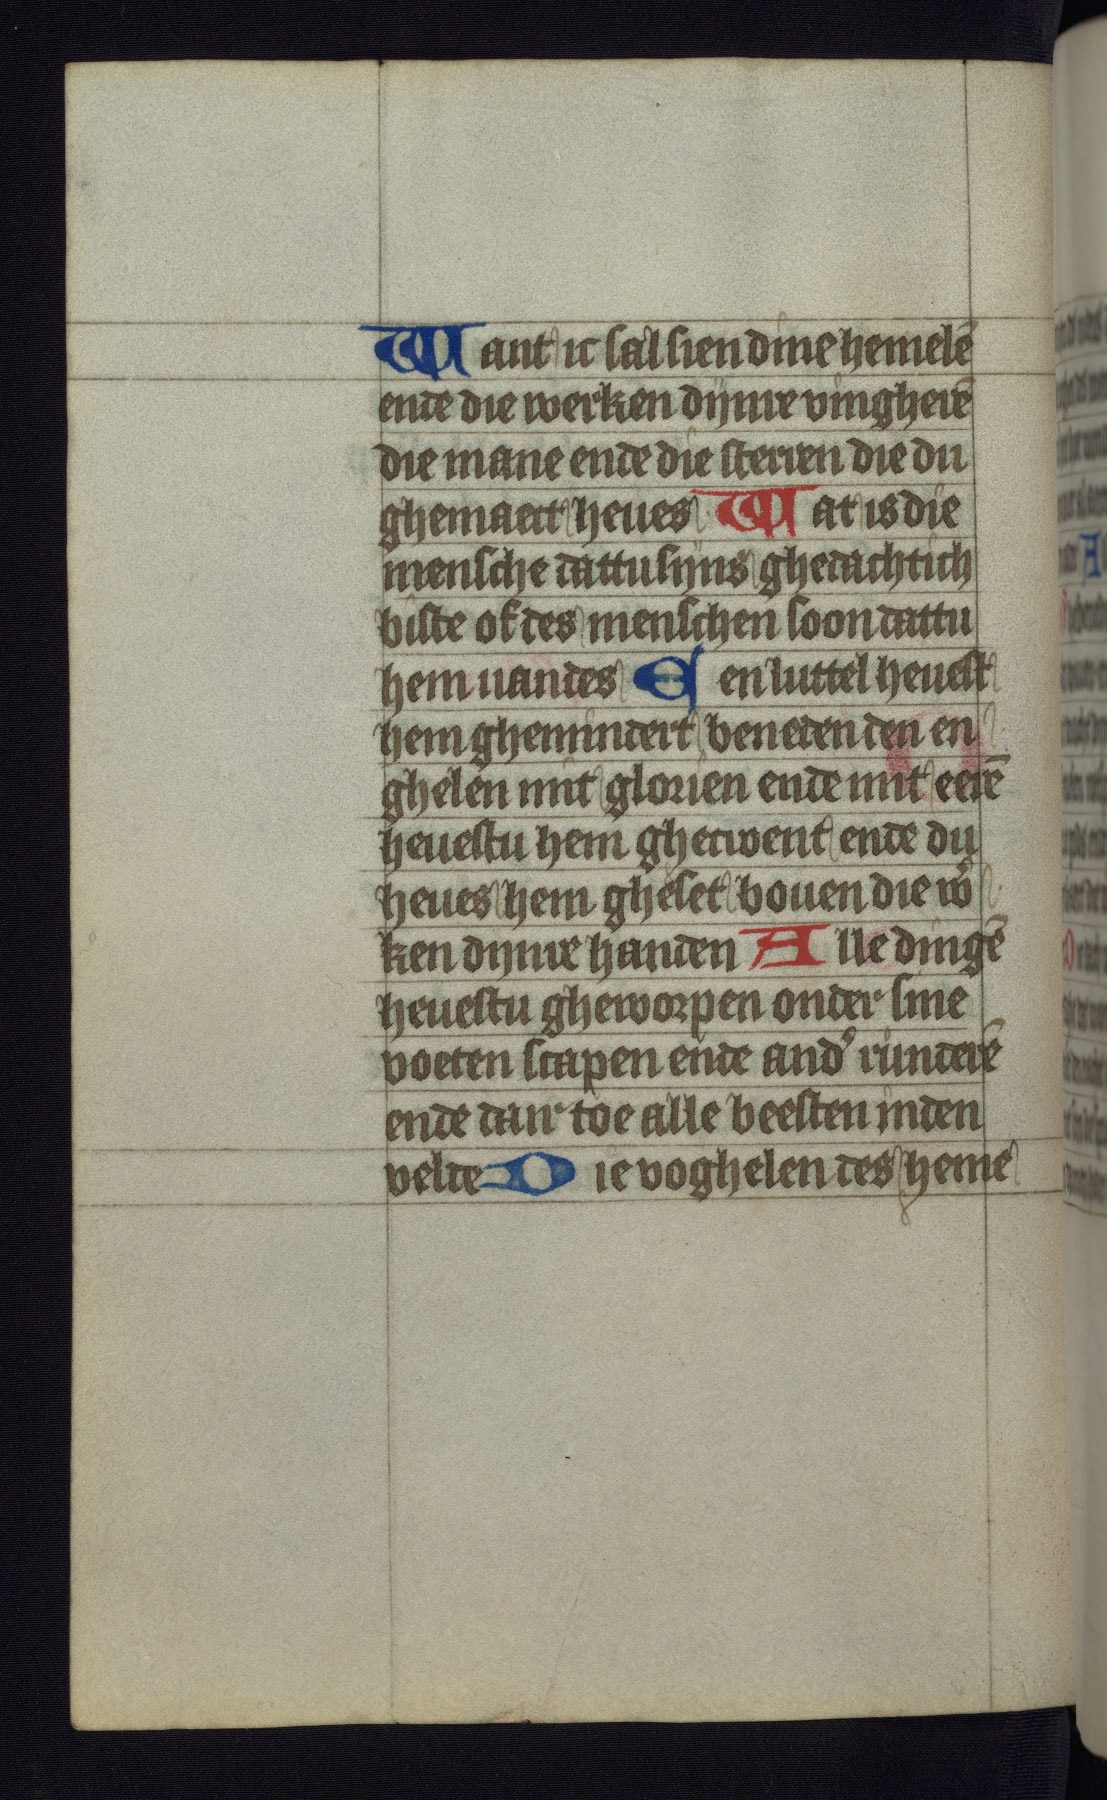 Want ic sal sien dine hemelē
ende die werken dijnre vingherē
die mane ende die sterren die du
ghemaect heues Wat is die
mensche dattu sijns ghedachtich
biste of des menschen soon dattu
hem uandes Een luttel heuest
hem ghemindert beneden den en
ghelen mit glorien ende mit eerē
heuestu hem ghecroent ende du
heues hem gheset bouen die w̉
ken dijnre handen Alle dingē
heuestu gheworpen onder sine
voeten scapen ende and̉ runderē
ende dair toe alle beesten inden
velde Die voghelen des heme